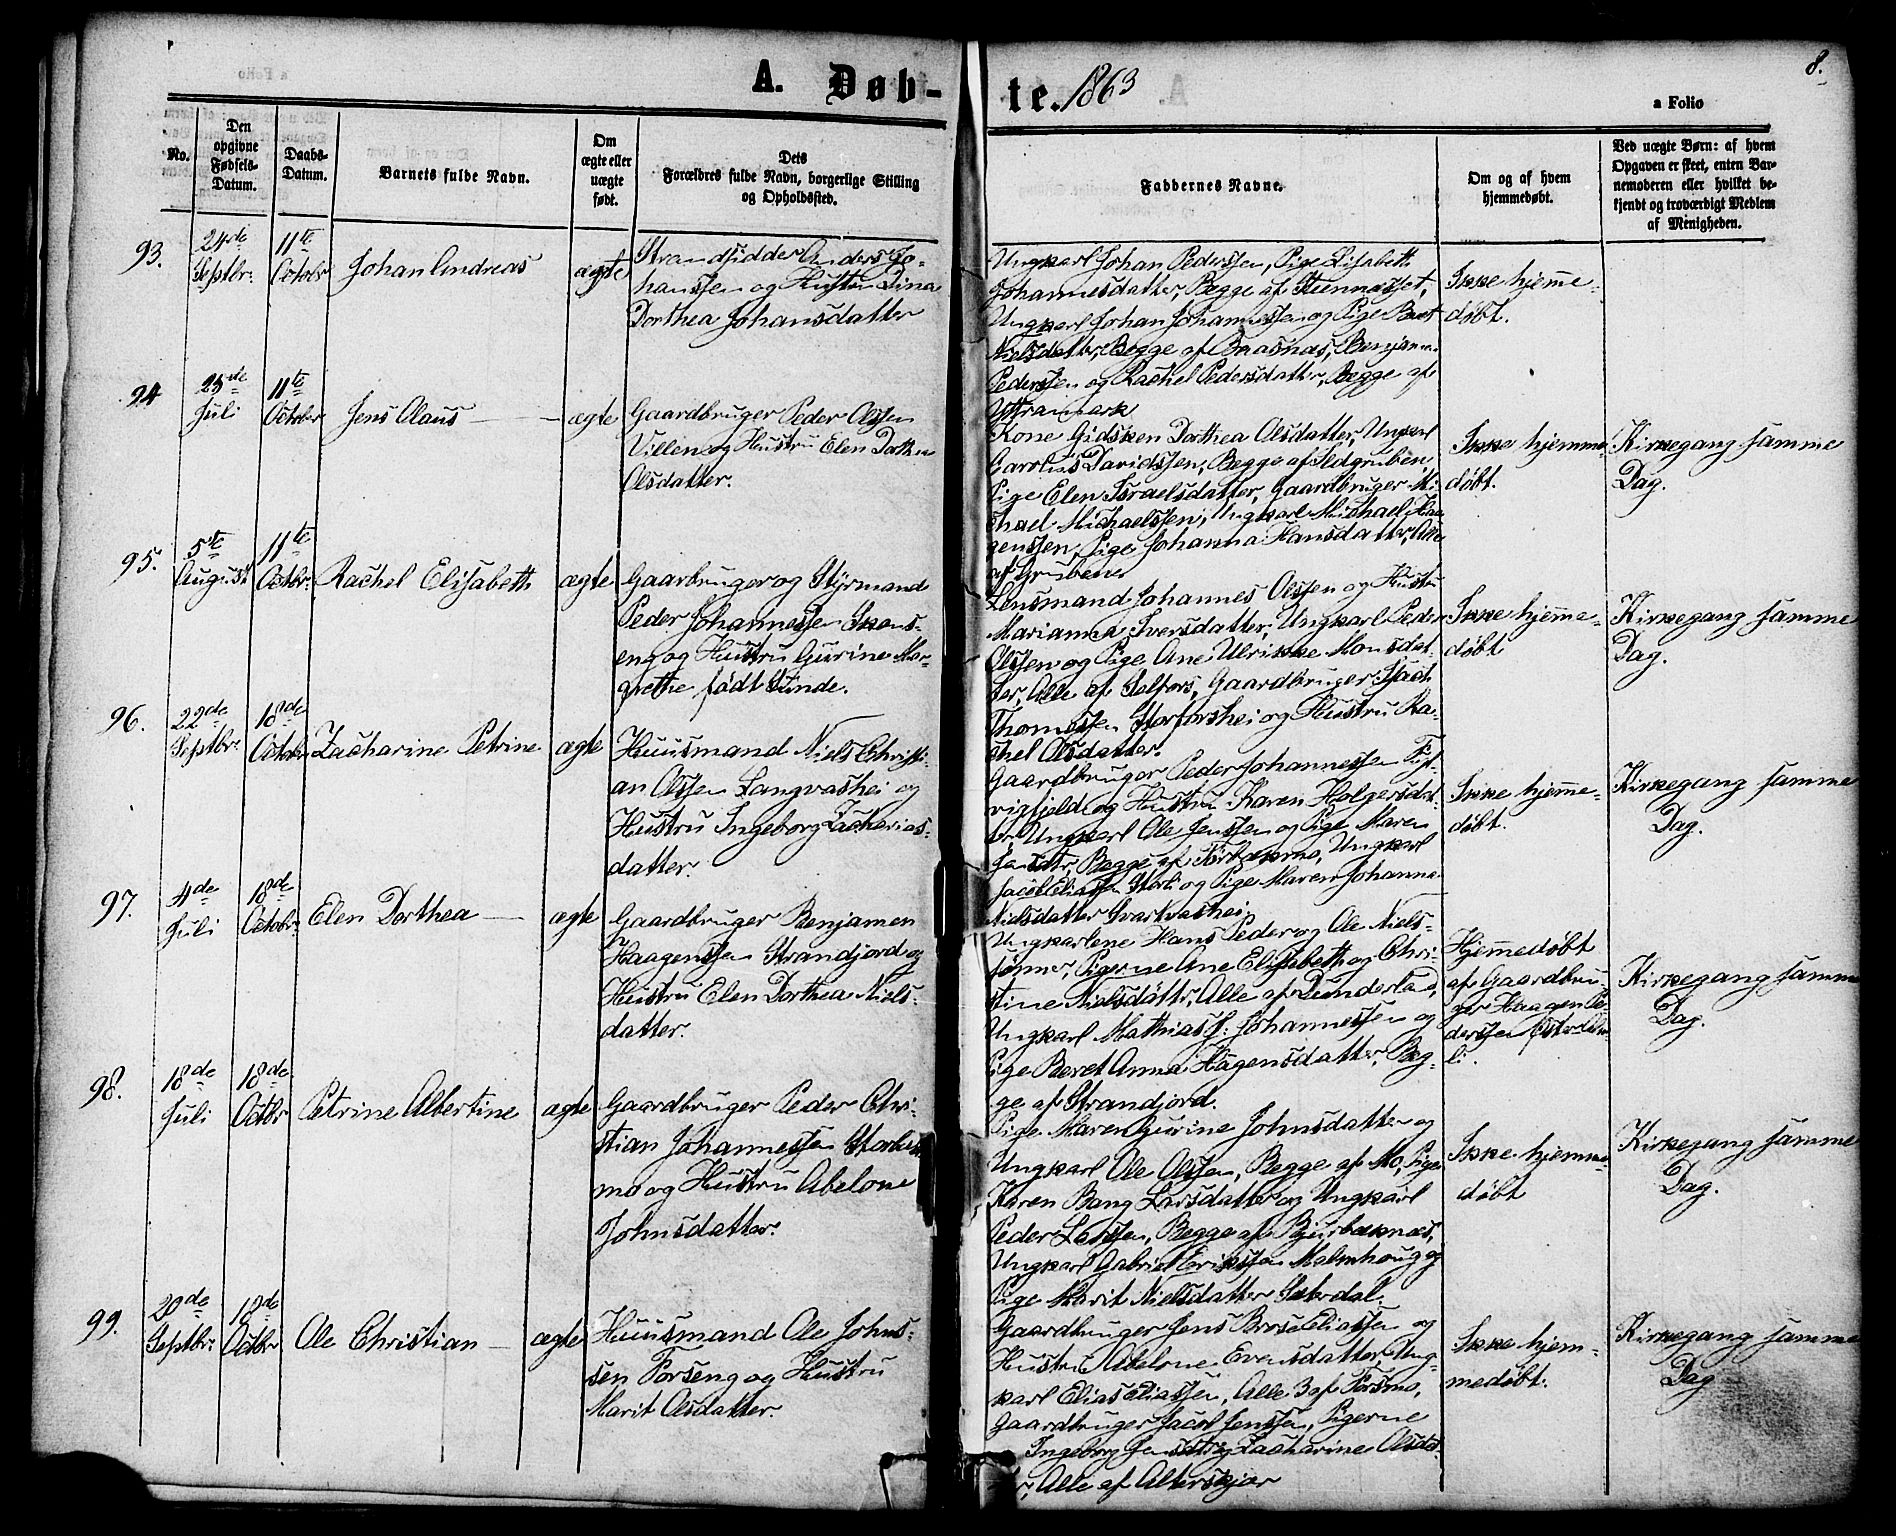 A. Døb-
te. 1863
8.
a Folio
No.
Den
opgivne
Fødsels-
Datum.
Daabs-
Datum.
Barnets fulde Navn.
Om
ægte eller
uægte
født.
Dets
Forældres fulde Navn, borgerlige Stilling
og Opholdssted.
Faddernes Navne.
Om og af hvem
hjemmedøbt.
Ved uægte Børn: af hvem
Opgaven er skeet, enten Bar-
nemoderen eller hvilket be-
kjendt og troværdigt Medlem
af Menigheden.
93.
24de
Septbr:
11te
Octobr
Johan Andreas
ægte
Strandsidder Anders Jo-
hanssen og Hustru Dina
Dorthea Johansdatter
Ungkarl Johan Pederssen, Pige Lisabeth
Johannesdatter, Begge af Steennesset,
Ungkarl Johan Johannessen og Pige Beret
Nielsdatter, Begge af Baasnæs, Benjam.
Pederssen og Rachel Pedersdatter, Begge af
Yttramark
Ikke hjemme-
døbt.
94
25de
Juli
11te
Octobr
Jens Olaus
ægte
Gaardbruger Peder Olssen
Villen og Hustru Elen Dorthea
Olsdatter.
Kone Gidsken Dorthea Olsdatter, Ungkarl
Carolus Davidssen, Begge af Sedgruben,
Pige Elen Israelsdatter, Gaardbruger Mi-
chael Michaelssen, Ungkarl Michael Haa-
genssen, Pige Johanna Hansdatter, Alle
af Grubene
Ikke hjemme-
døbt.
Kirkegang samme
Dag.
95.
5te
August
11te
Octbr:
Rachel Elisabeth
ægte
Gaarbruger og Styrmand
Peder Johannessen Skons-
eng og Hustru Gurine Mar-
grethe født Winde.
Lensmand Johannes Olssen og Hustru
Marianna Iversdatter, Ungkarl Peder
Olssen og Pige Ane Ulrikke Monsdat-
ter, Alle af Selfors, Gaardbruger Isach
Thomessen Storforshei og Hustru Ra-
chel Olsdatter.
Ikke hjemme-
døbt
Kirkegang samme
Dag.
96.
22de
Septbr:
18de
Octobr
Zacharine Petrine
ægte
Huusmand Niels Christi-
an Olssen Langvashei og
Hustru Ingeborg Zacharias-
datter.
Gaardbruger Peder Johannessen Fisk-
vigfjeld og Hustru Karen Holgersdat-
ter, Ungkarl Ole Jenssen og Pige Maren
Jensdtr, Begge af Tørbækmo, Ungkarl
Jacob Eliassen Storli og Pige Maren Johanna
Nielsdatter Svartvashei
Ikke hjemme-
døbt.
Kirkegang samme
Dag.
97.
4de
Juli
18de
Octobr:
Elen Dorthea
ægte
Gaardbruger Benjamen
Haagenssen Strandjord og
Hustru Elen Dorthea Niels-
datter.
Ungkarlene Hans Peder og Ole Niels-
sønner, Pigerne Ane Elisabeth og Chri-
stine Nielsdøttr, Alle af Dunderland,
Ungkarl Mathias J: Johannessen og
Pige Beret Anna Hagensdatter, Beg-
ge af Strandjord.
Hjemmedøbt
af Gaardbru-
ger Haagen Pe-
derssen
li.
Kirkegang samme
Dag.
98.
18de
Juli
18de
Octbr
Petrine Albertine
ægte
Gaardbruger Peder Chri-
stian Johannessen Storbæk
mo og Hustru Abelone
Johnsdatter.
Pige Maren Gurine Johnsdatter og
Ungkarl Ole Olssen, Begge af Mo, Pige
Karen Bang Larsdatter og Ungkarl
Peder Larssen, Begge af Bjurbæknæs,
Ungkarl Gabriel Erikssen Malmhoug og
Pige Marit Nielsdatter Sæterdal.
Ikke hjemme-
døbt
Kirkegang samme
Dag.
99.
20de
Septbr:
18de
Octbr
Ole Christian
ægte
Huusmand Ole Johns-
sen Forseng og Hustru
Marit Olsdatter.
Gaardbruger Jens Brose Eliassen og
Hustru Abelone Evensdatter, Ung-
karl Elias Eliassen, Alle 3 af Forsmo,
Gaardbruger Jacob Jenssen, Pigerne
Ingeborg Jensdtr og Zacharine Olsdat-
ter, Alle af Alterskjær
Ikke hjem-
medøbt.
Kirkegang samme
Dag